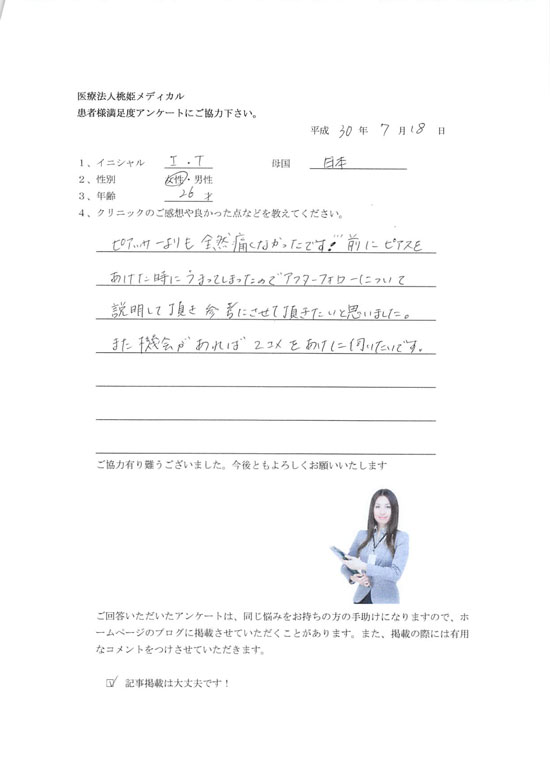 医療法人桃姫メディカル
患者様満足度アンケートにご協力下さい。
平成 30 年 7 月 18 日
1、イニシャル I・T 母国 日本
2、性別 女性・男性
3、年齢 26 才
4、クリニックのご感想や良かった点などを教えてください。
ピアッサーよりも全然痛くなかったです!!前にピアスを
あけた時にうまってしまったのでアフターフォローについて
説明して頂き参考にさせて頂きたいと思いました。
また機会があれば2コメをあけに伺いたいです。
ご協力有り難うございました。今後ともよろしくお願いいたします
ご回答いただいたアンケートは、同じ悩みをお持ちの方の手助けになりますので、ホ
ームページのブログに掲載させていただくことがあります。また、掲載の際には有用
なコメントをつけさせていただきます。
☑ 記事掲載は大丈夫です！